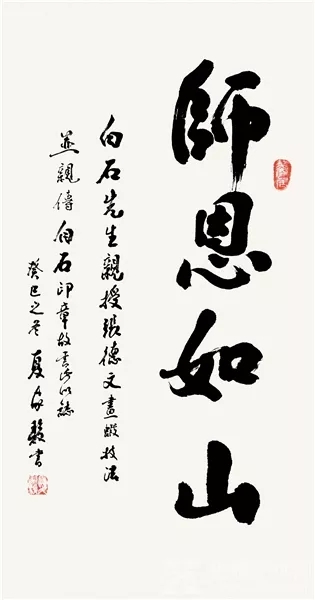 師恩如山
白石先生親授張德文畫蝦技法
並親傳白石印章故書此以誌
癸巳之冬夏家駿書